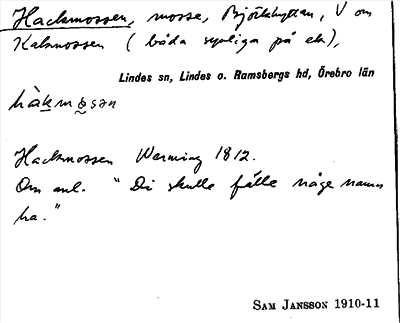 Hackmossen, mosse, Björkhyttan, V om
Kalmossen (båda synliga på ek),
Lindes sn, Lindes o. Ramsbergs hd, Örebro län
Hackmossen Werming 1812.
Om anl. "Di skulle fälle någe namn
ha."
SAM JANSSON 1910-11